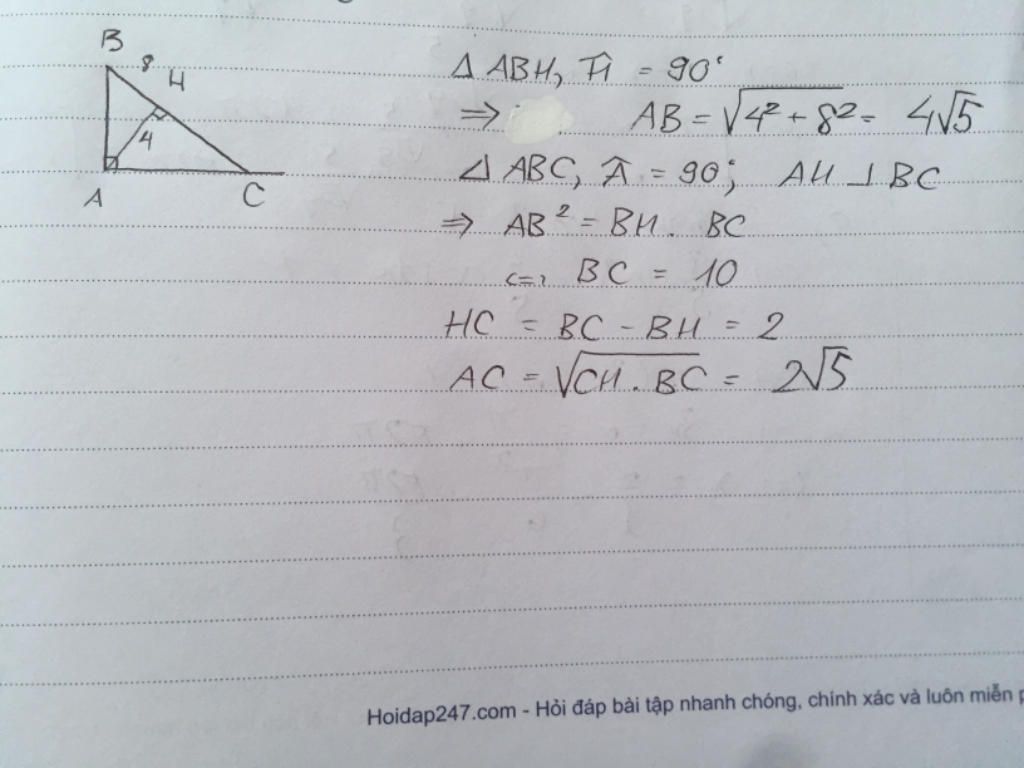 B
8
H
4
A
C
Δ ABH, Ĥ = 90°
⇒ AB = √(4² + 8²) = 4√5
Δ ABC, Â = 90°; AH ⊥ BC
⇒ AB² = BH . BC
<=> BC = 10
HC = BC - BH = 2
AC = √(CH . BC) = 2√5
Hoidap247.com - Hỏi đáp bài tập nhanh chóng, chính xác và luôn miễn p